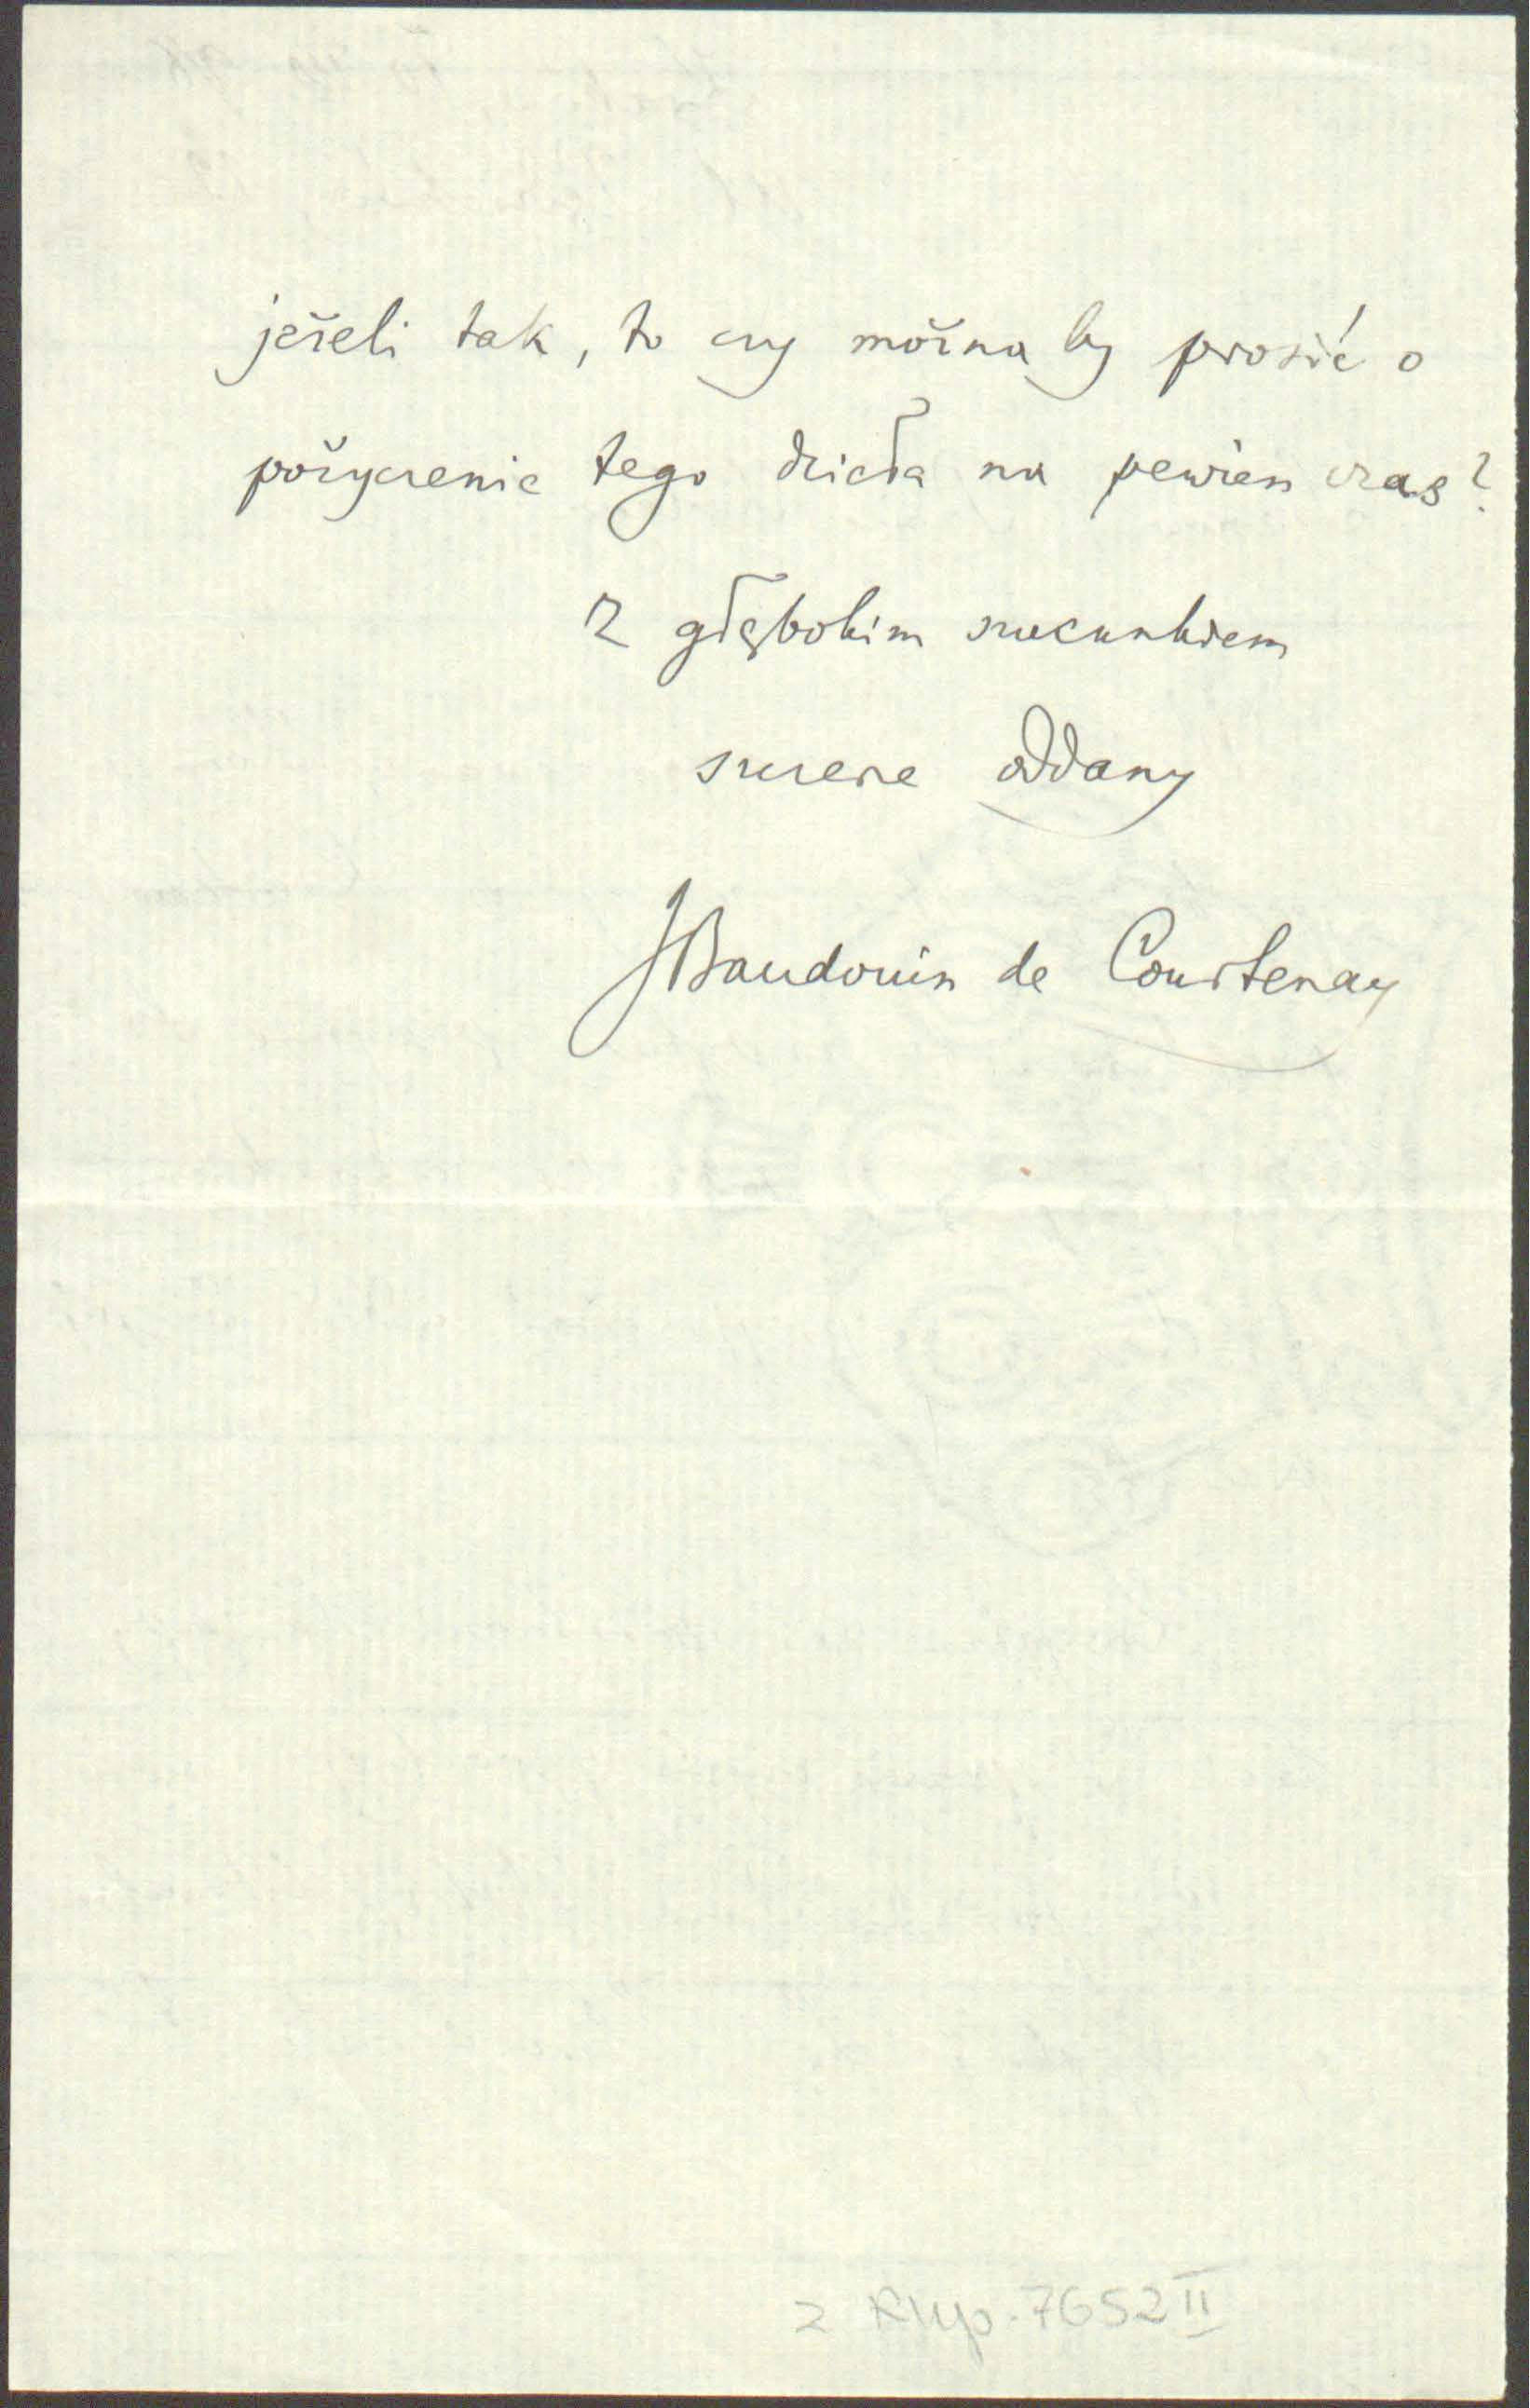 jeżeli tak, to czy można by prosić o
pożyczenie tego dzieła na pewien czas?
Z głębokim szacunkiem
szczerze oddany
JBaudouin de Courtenay
z Rkp. 7652 II